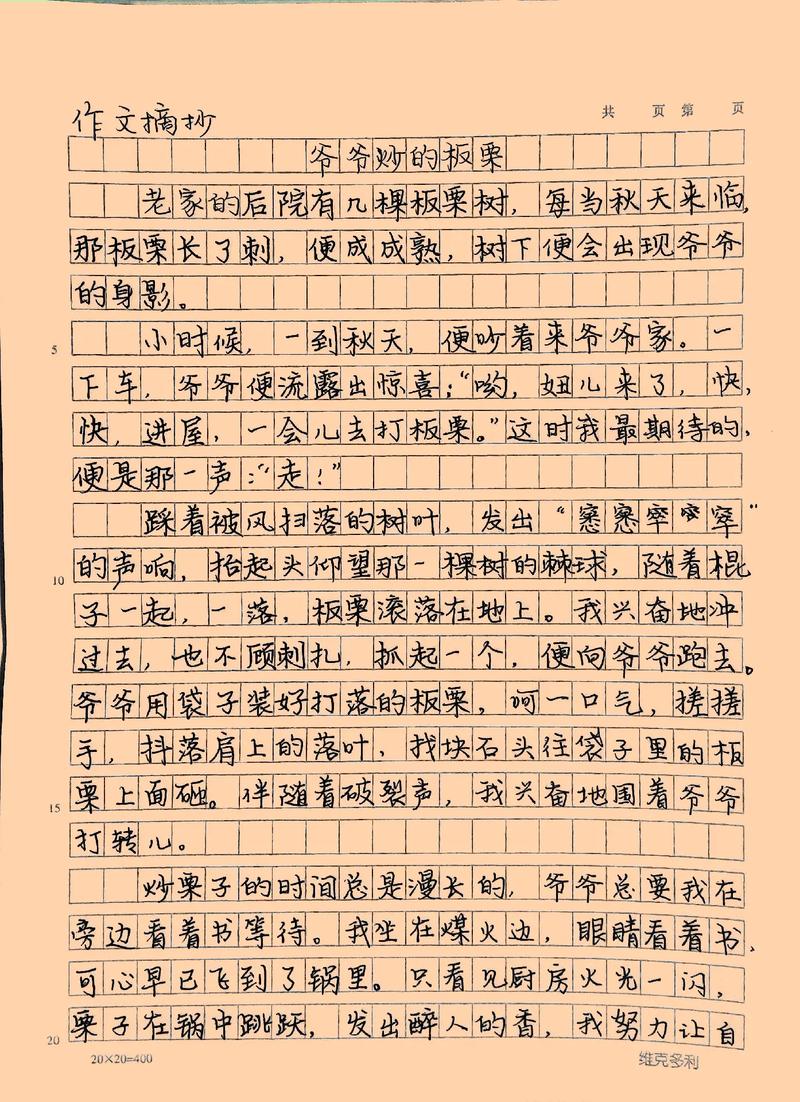 共 页 第 页
作文摘抄
爷爷炒的板栗
老家的后院有几棵板栗树，每当秋天来临，
那板栗长了刺，便成成熟，树下便会出现爷爷
的身影。
小时候，一到秋天，便吵着来爷爷家。一
5
下车，爷爷便流露出惊喜：“哟，妞儿来了，快，
快，进屋，一会儿去打板栗。”这时我最期待的，
便是那一声：“走！”
踩着被风扫落的树叶，发出“窸窸窣窣窣”
的声响，抬起头仰望那一棵树的棘球，随着棍
10
子一起，一落，板栗滚落在地上。我兴奋地冲
过去，也不顾刺扎，抓起一个，便向爷爷跑去。
爷爷用袋子装好打落的板栗，呵一口气，搓搓
手，抖落肩上的落叶，找块石头往袋子里的板
栗上面砸。伴随着破裂声，我兴奋地围着爷爷
15
打转儿。
炒栗子的时间总是漫长的，爷爷总要我在
旁边看着书等待。我坐在煤火边，眼睛看着书，
可心早已飞到了锅里。只看见厨房火光一闪，
栗子在锅中跳跃，发出醉人的香，我努力让自
20
20×20=400
维克多利